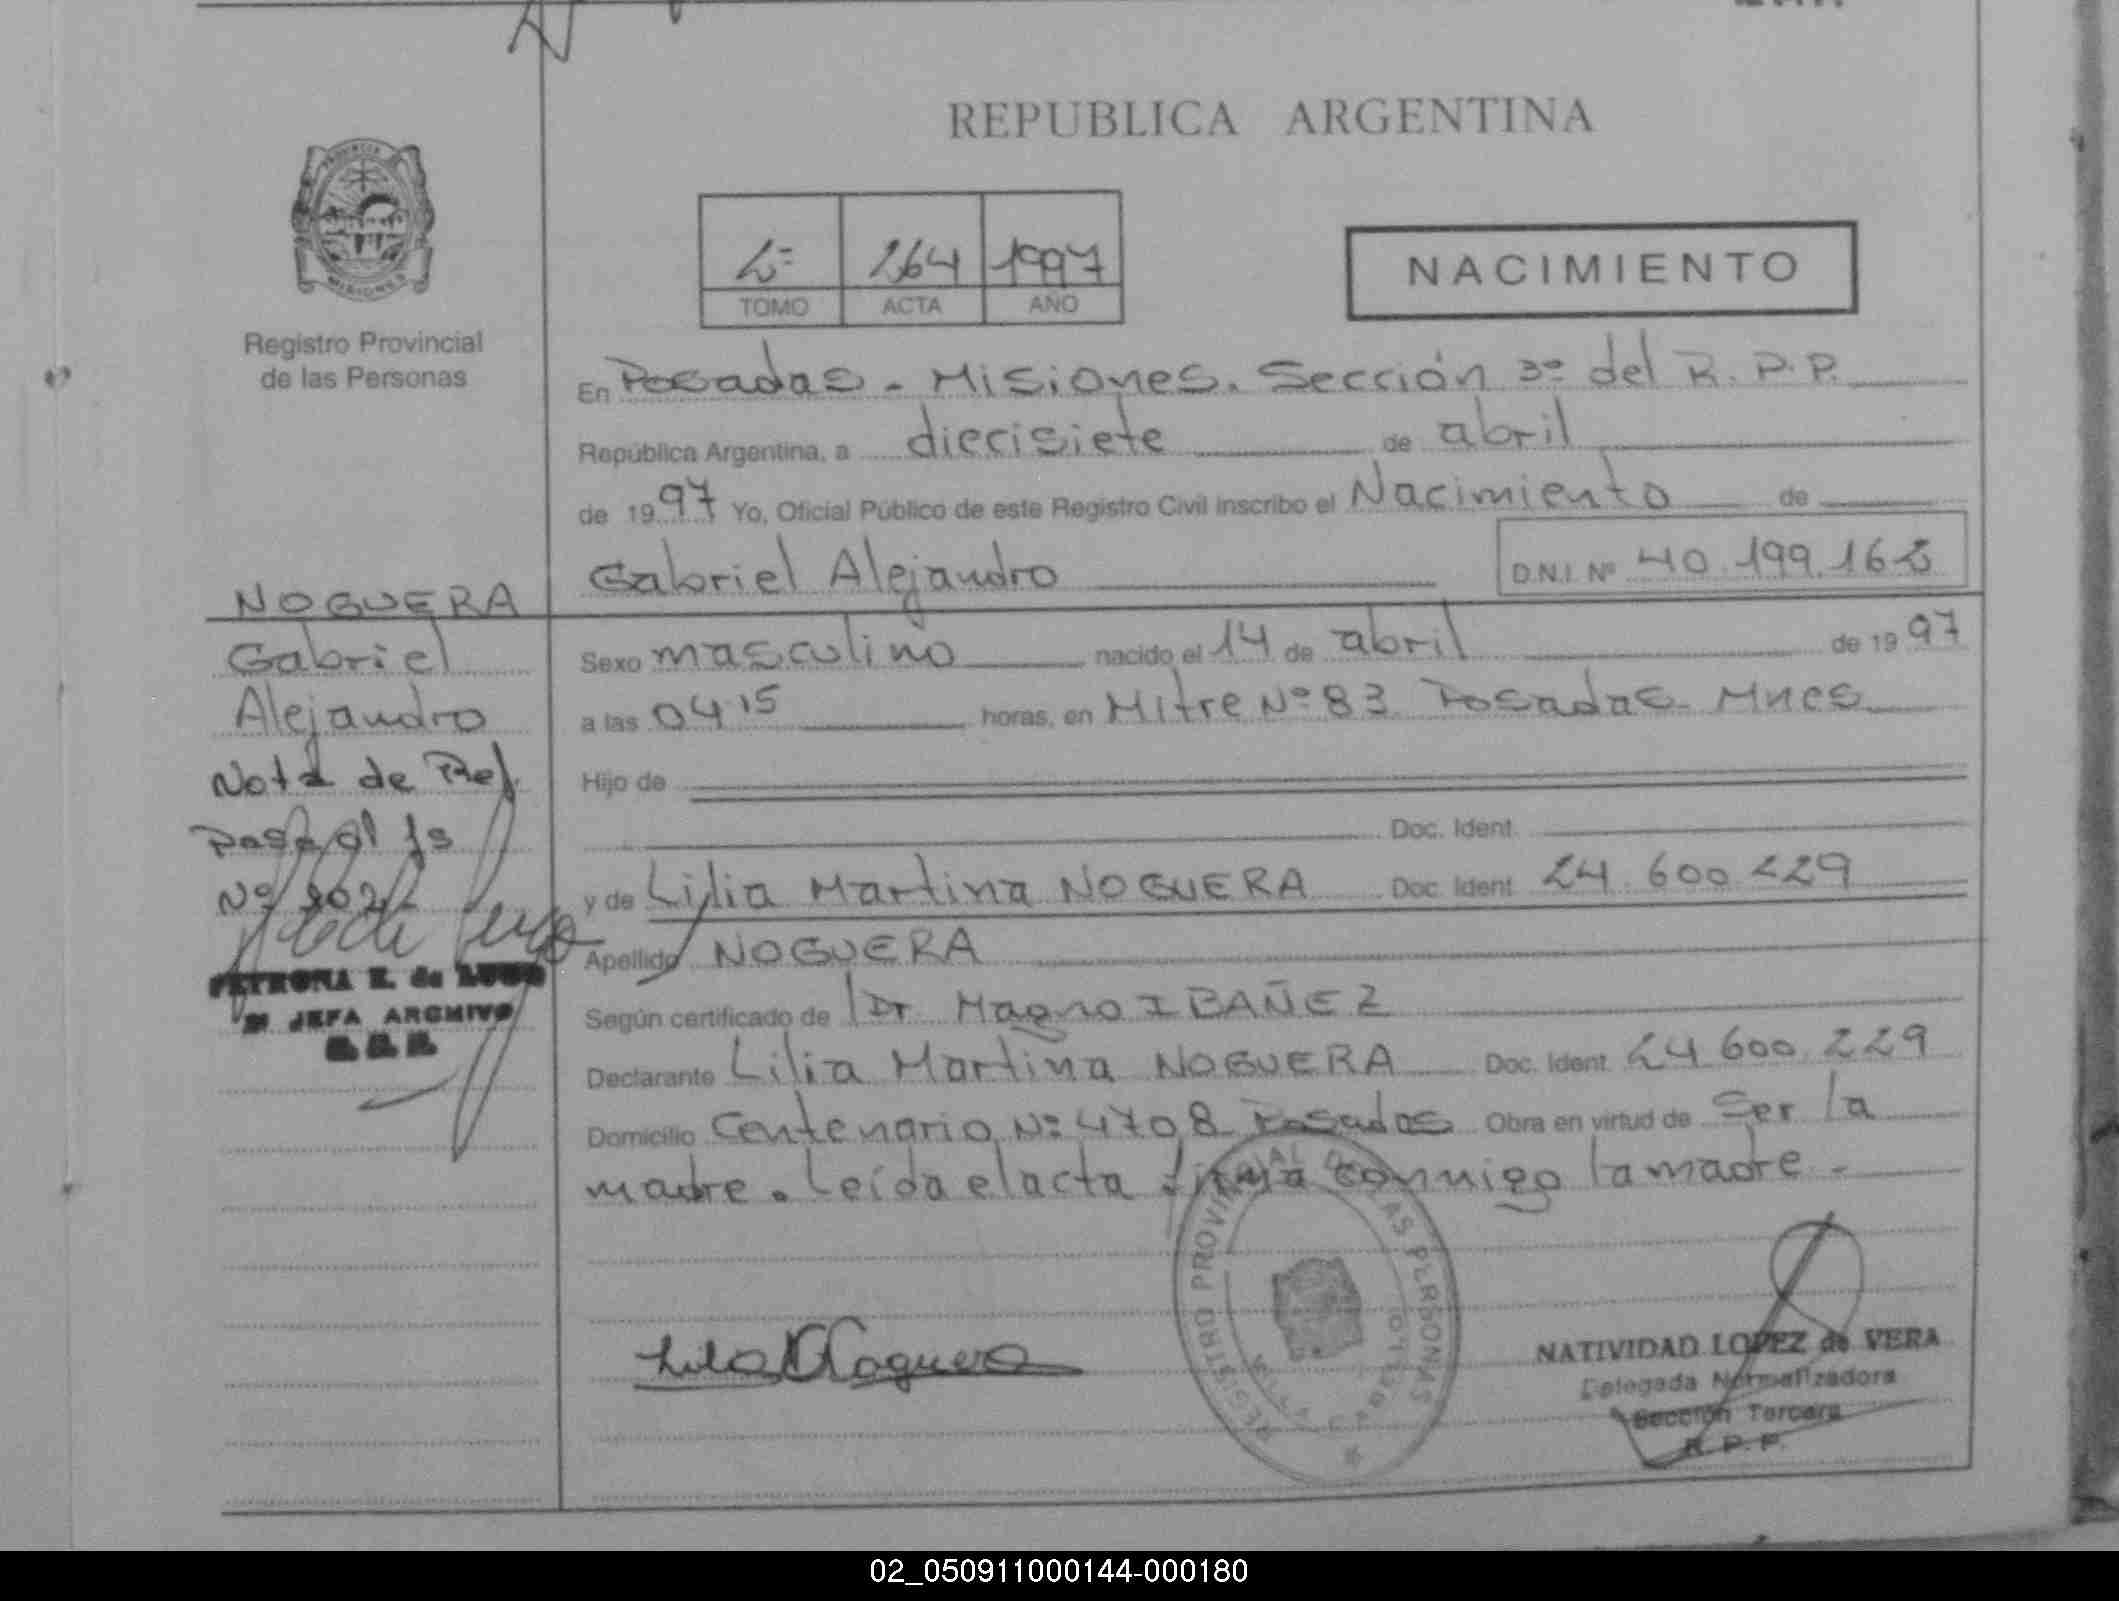 REPUBLICA ARGENTINA
PROVINCIA
MISIONES
Registro Provincial
de las Personas
2º 264 1997
TOMO ACTA AÑO
NACIMIENTO
En Posadas - Misiones. Sección 3º del R.P.P.
República Argentina, a diecisiete de abril
de 1997 Yo, Oficial Público de este Registro Civil inscribo el Nacimiento de
Gabriel Alejandro D.N.I. Nº 40.199.163
NOGUERA
Gabriel
Alejandro
Nota de Ref.
Pasa al fs
Nº 202
PETRONA E. de LUGO
JEFA ARCHIVO
Sexo masculino nacido el 14 de abril de 1997
a las 04 15 horas, en Mitre Nº 83 Posadas Mnes
Hijo de
Doc. Ident.
y de Lilia Martina NOGUERA Doc. Ident. 24.600.229
Apellido NOGUERA
Según certificado de Dr. Magno IBAÑEZ
Declarante Lilia Martina NOGUERA Doc. Ident. 24.600.229
Domicilio Centenario Nº 4708 Posadas Obra en virtud de Ser la
madre. Leída el acta firma conmigo la madre -
REGISTRO PROVINCIAL DE LAS PERSONAS
NATIVIDAD LOPEZ de VERA
Delegada Normalizadora
Sección Tercera
R.P.P.
02_050911000144-000180